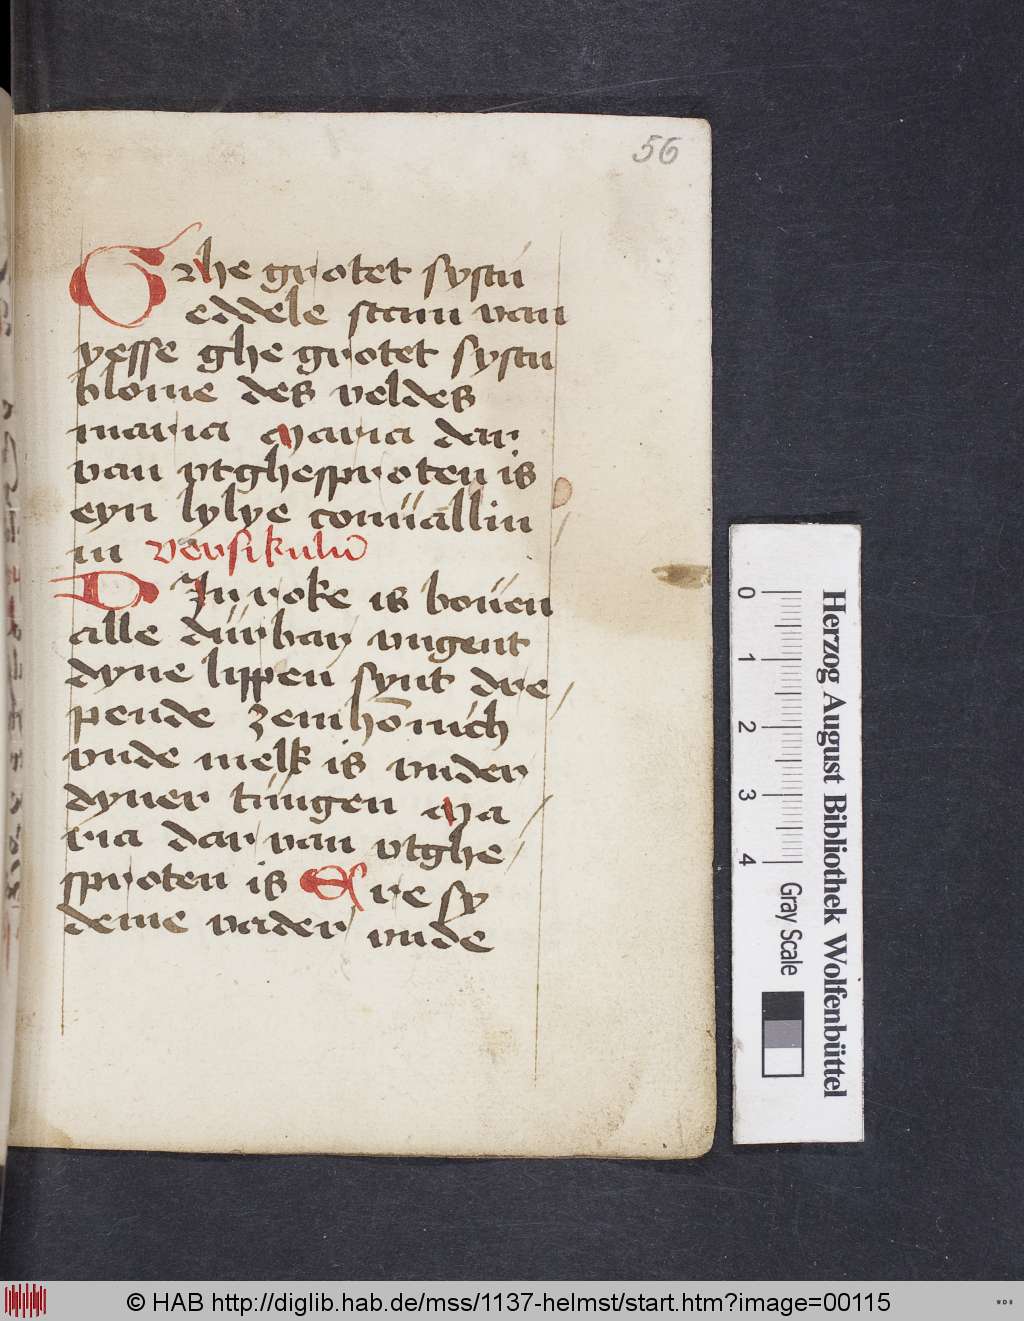 56
Ghe grotet systu
eddele stam van
yesse ghe grotet systu
blome des veldes
maria Maria dar
van vtghesproten is
eyn lylye conuallin
m versikulū
Din roke is bouen
alle dürbar vngent
dyne lippen synt dre
pende zem hōnich
vnde melk is vnder
dyner tüngen Ma
ria dar van vtghe
sproten is Ere sy
deme vader vnde
Herzog August Bibliothek Wolfenbüttel
0 1 2 3 4
Gray Scale
© HAB http://diglib.hab.de/mss/1137-helmst/start.htm?image=00115